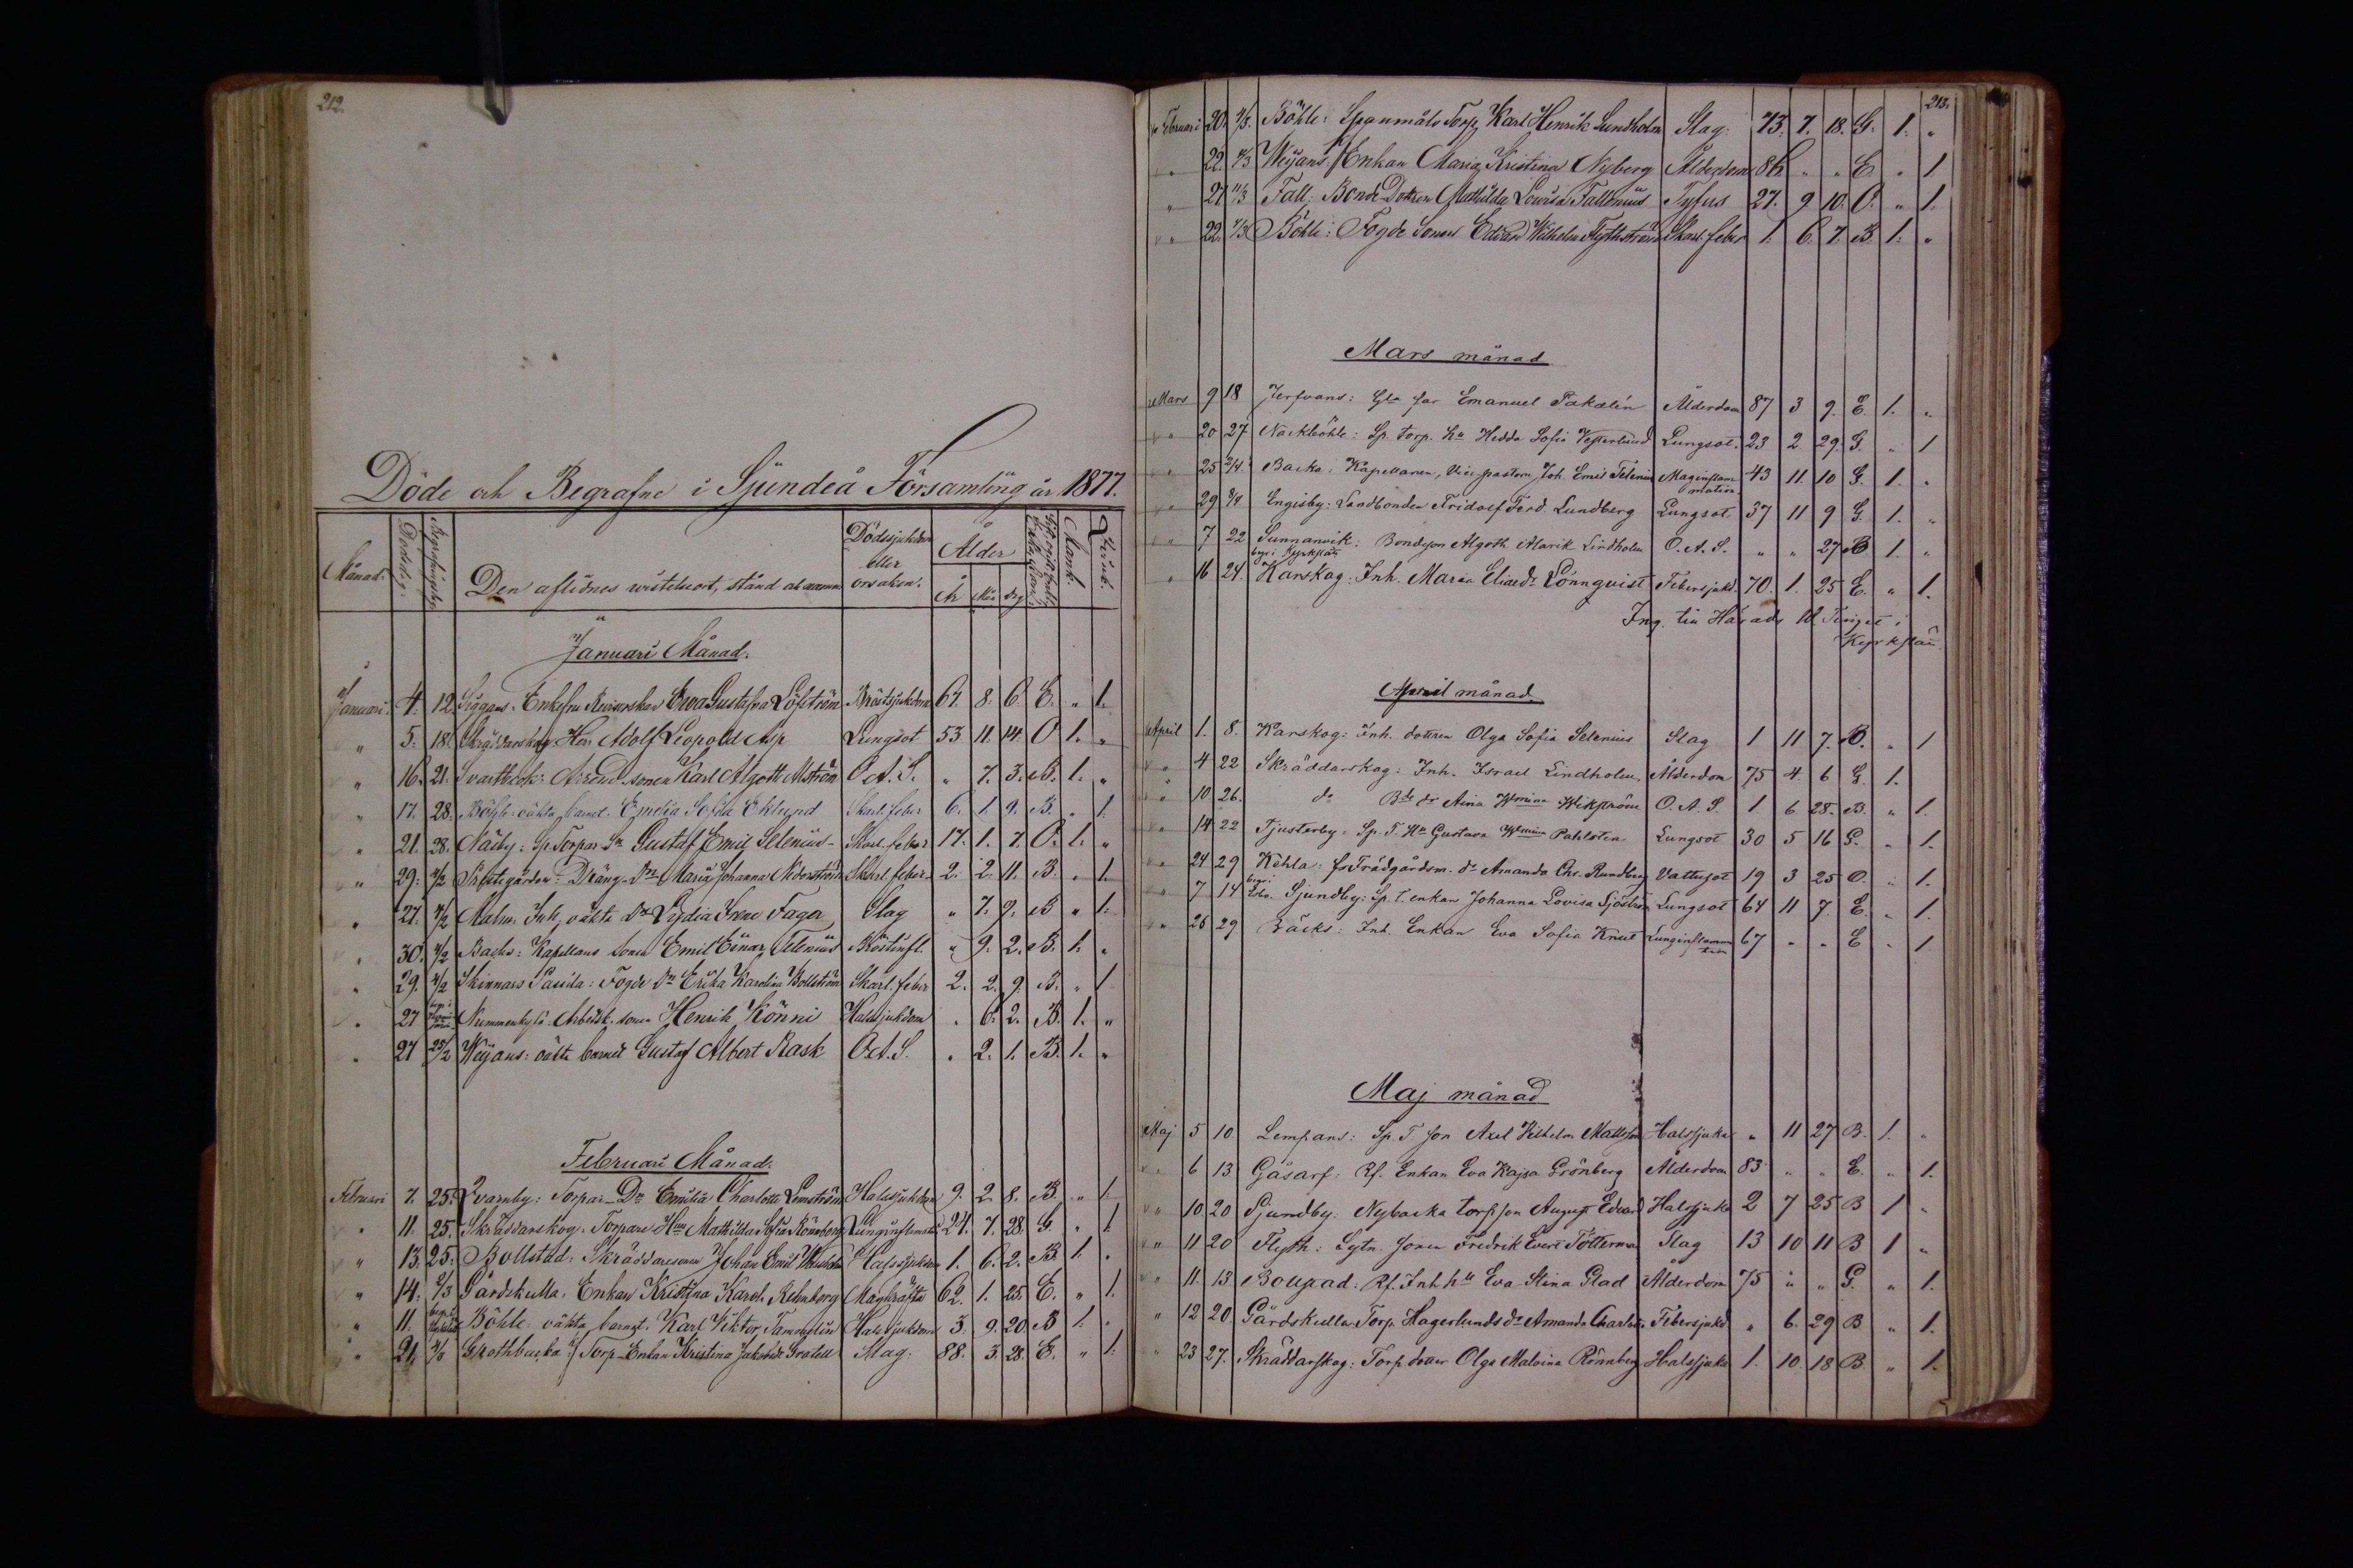 212.
Döde och Begrafne i Sjundeå Församling år 1877.
Månad. Dödsdag. Begrafningsdag. Den aflidnes vistelseort, stånd och namn Dödssjukdom eller orsaken. Ålder År Mån Dag Mank. Qvink.
Januari Månad.
Januari 4. 12. Siggans. Enkefru Ewa Gustafva Löfström Bröstsjukdom 67. 8. 6. E. " 1.
" 5. 18. Skräddarskog. Herr Adolf Leopold Asp Lungsot 53 11. 14. O. 1. "
" 16. 21. Svartbeck: sonen Karl Algoth Alström O.A.S. " 7. 3. B. 1. "
" 17. 28. Böhle: oäkta barnet. Emelia Sofia Eklund Skarl. feber 6. 1. 9. B. " 1.
" 21. 28. Näsby: Sp. Torpar Sn Gustaf Emil Selenius Skarl. feber 17. 1. 7. O. 1. "
" 29. 4/2 Prestgården: Dräng Dn Maria Johanna Skarl. feber 2. 2. 11. B. " 1.
" 27. 4/2 Malm. Inh. oäkta Dr Lydia Irene Fager Slag " 7. 9. B " 1.
" 30. 4/2 Backa: Kapellans sonen Emil Einar Telenius Bröstinfl. " 9. 2. B. 1. "
" 29. 4/2 Skinnars Pasila: Fogde Dn Erika Karolina Bollström Skarl. feber 2. 2. 9. B. " 1
" 27 Nummenkylä. Arbetsk. sonen Henrik Könni Halssjukdom " 6. 2. B. 1. "
" 27 25/2 Weijans: oäkta barnet Gustaf Albert Rask O.A.S. " 2. 1. B. 1. "
Februari Månad.
Februari 7. 25. Qvarnby: Torpar-Dn Emilia Charlotta Lemström Halssjukdom 9. 2. 8. B. " 1.
" 11. 25. Skräddarskog. Torpare Hun Mathilda Sofia Rönnberg 24. 7. 28. G " 1.
" 13. 25. Bollstad. Skräddaresonen Johan Emil Halssjukdom 1. 6. 2. B. 1. "
" 14. Gårdskulla. Enkan Kristina Karol. Rehnborg Magkräfta 62. 1. 25. E. " 1.
" 11. Böhle: oäkta barnet. Karl Viktor Tammelin Halssjukdom 3. 9. 20. B 1. "
" 21. Grothbacka: Torp-Enkan Kristina Jakobsdr Grotell Slag. 88. 3. 28. E. " 1.
213.
Februari 20. 4/3. Böhle: Spanmåls Torp. Karl Henrik Sundholm Slag. 73. 7. 18. G. 1. "
" 22. 4/3 Weijans: Enkan Maria Kristina Nyberg Ålderdom 86. " " E. " 1
" 27 11/3 Fall: Bonde-Dottren Mathilda Lowisa Fallenius Tyfus 27. 9 10. O. " 1.
" 22. 4/3 Böhle: Fogde Sonen Edvard Wilhelm Flythström Skarl. feber 1. 6. 7. B. 1. "
Mars månad
Mars 9 18 Jerfvans: Gla far Emanuel Pakalén Ålderdom 87 3 9. E. 1. "
" 20 27 Nackböhle: Sp. torp. hu Hedda Sofia Vesterlund Lungsot. 23 2 29. G. " 1
" 25 2/4. Backa: Kapellanen, Vice pastorn Joh. Emil Telenius Maginflammation 43 11. 10 G. 1. "
" 29 8/4 Engisby: Landbonden Fridolf Ferd. Lundberg Lungsot 37 11 9 G. 1. "
" 7 22 Sunnanvik: Bondeson Algoth Alarik Lindholm O.A.S. " " 27 B 1. "
begr. i Kyrkslätt
" 16 24. Karskog. Inh. Maria Eliaedr Lönnqvist Febersjukd. 70. 1. 25 E. " 1.
Ing. till Härads Tinget i
Kyrkslätt.
April månad
April 1. 8. Karskog: Inh. dottren Olga Sofia Selenius Slag 1 11 7. B. " 1
" 4 22 Skräddarskog: Inh. Israel Lindholm. Ålderdom 75 4. 6 G. 1.
" 10 26. do Aina Wikström O.A.S. 1 6 28. B. " 1.
" 14 22 Tjusterby: Sp. T. Hu Gustava Pahlsten Lungsot 30 5 16 G. " 1.
" 24 29 Kehla: fr Trädgårdsm. dr Amanda Chr. Rundberg Vattusot 19 3 25 O. " 1.
" 7 14 Sjundby: Sp. T. enkan Johanna Lovisa Sjöström Lungsot 64 11 7. E. " 1.
" 26 29 Bäcks: Inh. Enkan Eva Sofia Knut Lunginflammation 67 " " E " 1
Maj månad
Maj 5 10 Lempans: Sp. T. son Axel Vilhelm Mattsson Halssjuka " 11 27 B. 1. "
" 6 13 Gåsarf: Rf. Enkan Eva Kajsa Grönberg Ålderdom 83 " " E. " 1.
" 10 20 Sjundby. Nybacka torp. son August Edvard Halssjuka 2 7 25 B 1 "
" 11 20 Flyth: Lytn. sonen Fredrik Evert Tötterman Slag 13 10 11 B 1 "
" 11. 13 Bougad: Rf. Inh. hu Eva Stina Glad Ålderdom 75 " " G. " 1.
" 12 20 Gårdskulla: Torp. Hagerlunds dr Amanda Charlott. Febersjukd. " 6. 29 B " 1.
" 23 27. Skräddarskog: Torp. dotter Olga Malvina Rönnberg Halssjuka 1. 10. 18 B. " 1.